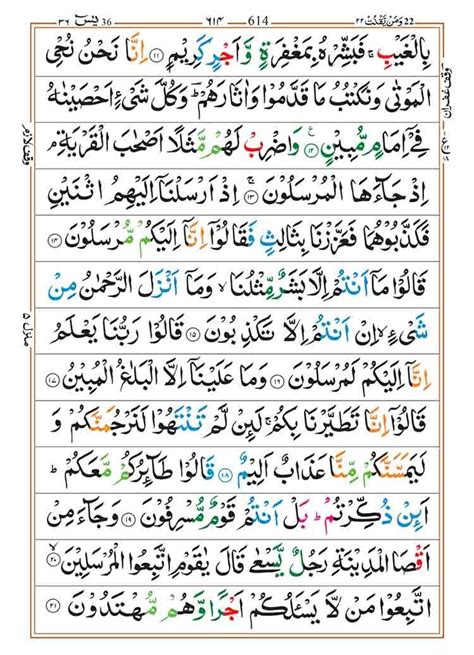 يٰسٓ 36 ٣٦ ٦١٤ 614 وَمَنْ يَّقْنُتْ 22 ٢٢
بِالْغَيْبِ ۚ فَبَشِّرْهُ بِمَغْفِرَةٍ وَّاَجْرٍ كَرِيْمٍ ۝١١ اِنَّا نَحْنُ نُحْيِ
الْمَوْتٰى وَنَكْتُبُ مَا قَدَّمُوْا وَاٰثَارَهُمْ ؕ وَكُلَّ شَىْءٍ اَحْصَيْنٰهُ
فِىْۤ اِمَامٍ مُّبِيْنٍ ۝١٢ وَاضْرِبْ لَهُمْ مَّثَلًا اَصْحٰبَ الْقَرْيَةِ ۘ
اِذْ جَآءَهَا الْمُرْسَلُوْنَ ۝١٣ اِذْ اَرْسَلْنَاۤ اِلَيْهِمُ اثْنَيْنِ
فَكَذَّبُوْهُمَا فَعَزَّزْنَا بِثَالِثٍ فَقَالُوْۤا اِنَّاۤ اِلَيْكُمْ مُّرْسَلُوْنَ ۝١٤
قَالُوْا مَاۤ اَنْتُمْ اِلَّا بَشَرٌ مِّثْلُنَا ۙ وَمَاۤ اَنْزَلَ الرَّحْمٰنُ مِنْ
شَىْءٍ ۙ اِنْ اَنْتُمْ اِلَّا تَكْذِبُوْنَ ۝١٥ قَالُوْا رَبُّنَا يَعْلَمُ
اِنَّاۤ اِلَيْكُمْ لَمُرْسَلُوْنَ ۝١٦ وَمَا عَلَيْنَاۤ اِلَّا الْبَلٰغُ الْمُبِيْنُ ۝١٧
قَالُوْۤا اِنَّا تَطَيَّرْنَا بِكُمْ ۚ لَئِنْ لَّمْ تَنْتَهُوْا لَنَرْجُمَنَّكُمْ وَ
لَيَمَسَّنَّكُمْ مِّنَّا عَذَابٌ اَلِيْمٌ ۝١٨ قَالُوْا طَآئِرُكُمْ مَّعَكُمْ ؕ
اَئِنْ ذُكِّرْتُمْ ؕ بَلْ اَنْتُمْ قَوْمٌ مُّسْرِفُوْنَ ۝١٩ وَجَآءَ مِنْ
اَقْصَا الْمَدِيْنَةِ رَجُلٌ يَّسْعٰى قَالَ يٰقَوْمِ اتَّبِعُوا الْمُرْسَلِيْنَ ۝٢٠
اتَّبِعُوْا مَنْ لَّا يَسْـَٔلُكُمْ اَجْرًا وَّهُمْ مُّهْتَدُوْنَ ۝٢١
وقف غفران
وقف لازم
منزل ٥